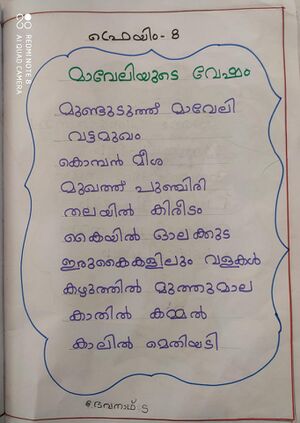 ഫ്രെയിം - 8
മാവേലിയുടെ വേഷം
മുണ്ടുടുത്ത് മാവേലി
വട്ടമുഖം
കൊമ്പൻ മീശ
മുഖത്ത് പുഞ്ചിരി
തലയിൽ കിരീടം
കൈയിൽ ഓലക്കുട
ഇരുകൈകളിലും വളകൾ
കഴുത്തിൽ മുത്തുമാല
കാതിൽ കമ്മൽ
കാലിൽ മെതിയടി
ദേവനാഥ്. S
REDMI NOTE 8
AI QUAD CAMERA